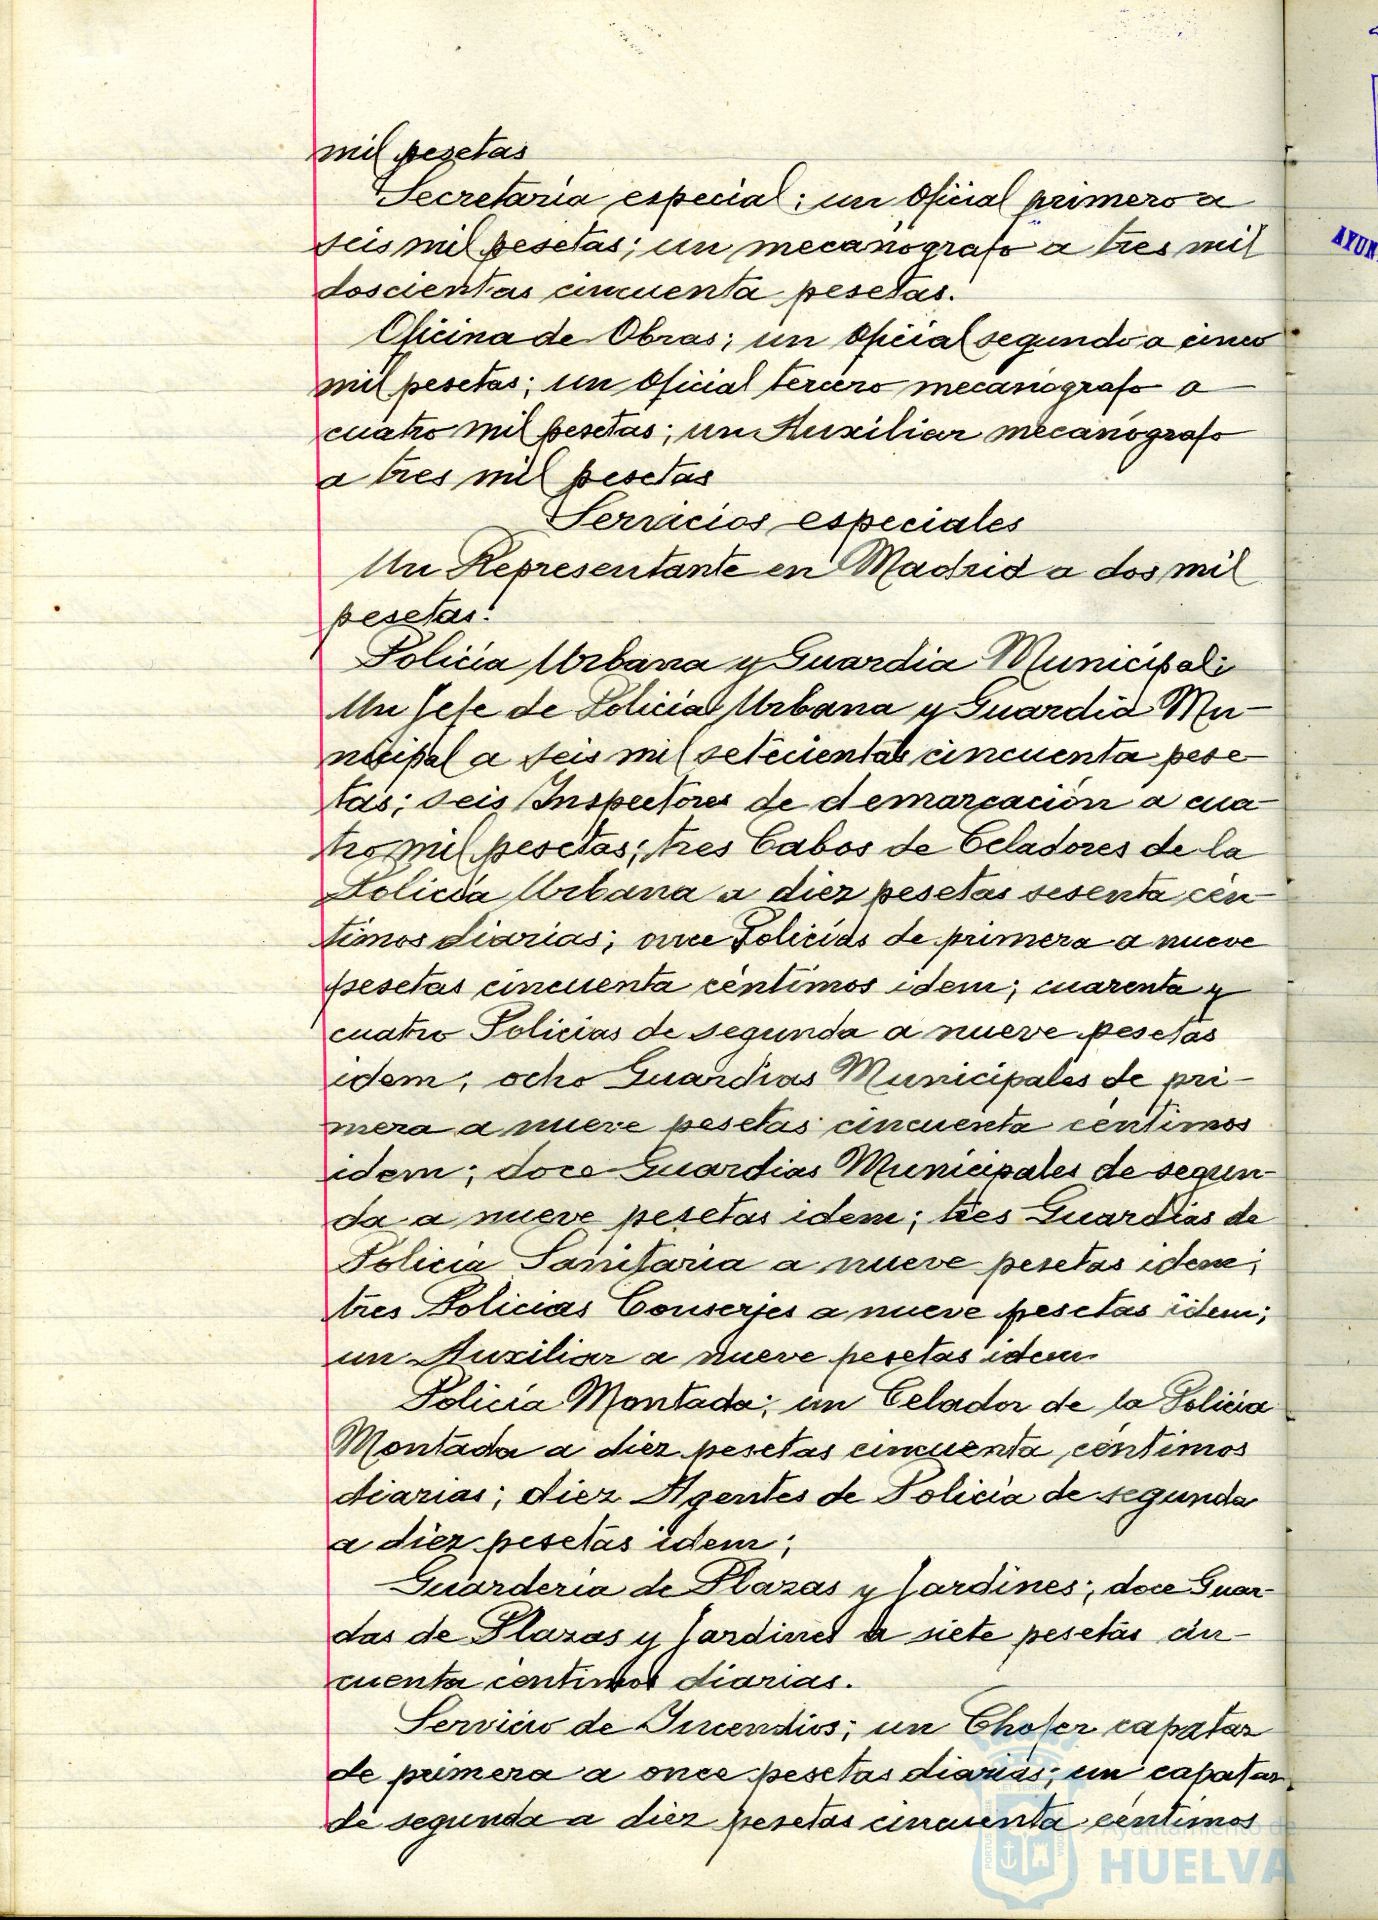 mil pesetas
Secretaría especial; un oficial primero a
seis mil pesetas; un mecanógrafo a tres mil
doscientas cincuenta pesetas.
Oficina de Obras; un oficial segundo a cinco
mil pesetas; un oficial tercero mecanógrafo a
cuatro mil pesetas; un Auxiliar mecanógrafo
a tres mil pesetas
Servicios especiales
Un Representante en Madrid a dos mil
pesetas.
Policía Urbana y Guardia Municipal:
Un Jefe de Policía Urbana y Guardia Mu-
nicipal a seis mil setecientas cincuenta pese-
tas; seis Inspectores de demarcación a cua-
tro mil pesetas; tres Cabos de Celadores de la
Policía Urbana a diez pesetas sesenta cén-
timos diarias; once Policías de primera a nueve
pesetas cincuenta céntimos idem; cuarenta y
cuatro Policías de segunda a nueve pesetas
idem; ocho Guardias Municipales de pri-
mera a nueve pesetas cincuenta céntimos
idem; doce Guardias Municipales de segun-
da a nueve pesetas idem; tres Guardias de
Policía Sanitaria a nueve pesetas idem;
tres Policías Conserjes a nueve pesetas idem;
un Auxiliar a nueve pesetas idem
Policía Montada; un Celador de la Policía
Montada a diez pesetas cincuenta céntimos
diarias; diez Agentes de Policía de segunda
a diez pesetas idem;
Guardería de Plazas y Jardines; doce Guar-
das de Plazas y Jardines a siete pesetas cin-
cuenta céntimos diarias.
Servicio de Incendios; un Chofer capataz
de primera a once pesetas diarias; un capataz
de segunda a diez pesetas cincuenta céntimos
Ayuntamiento de
HUELVA
AYUN